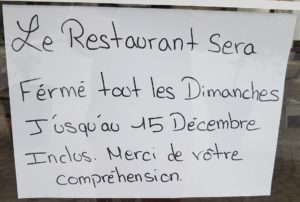 Le Restaurant Sera
Férmé tout les Dimanches
J'usqu'au 15 Décembre
Inclus. Merci de vôtre
compréhension.